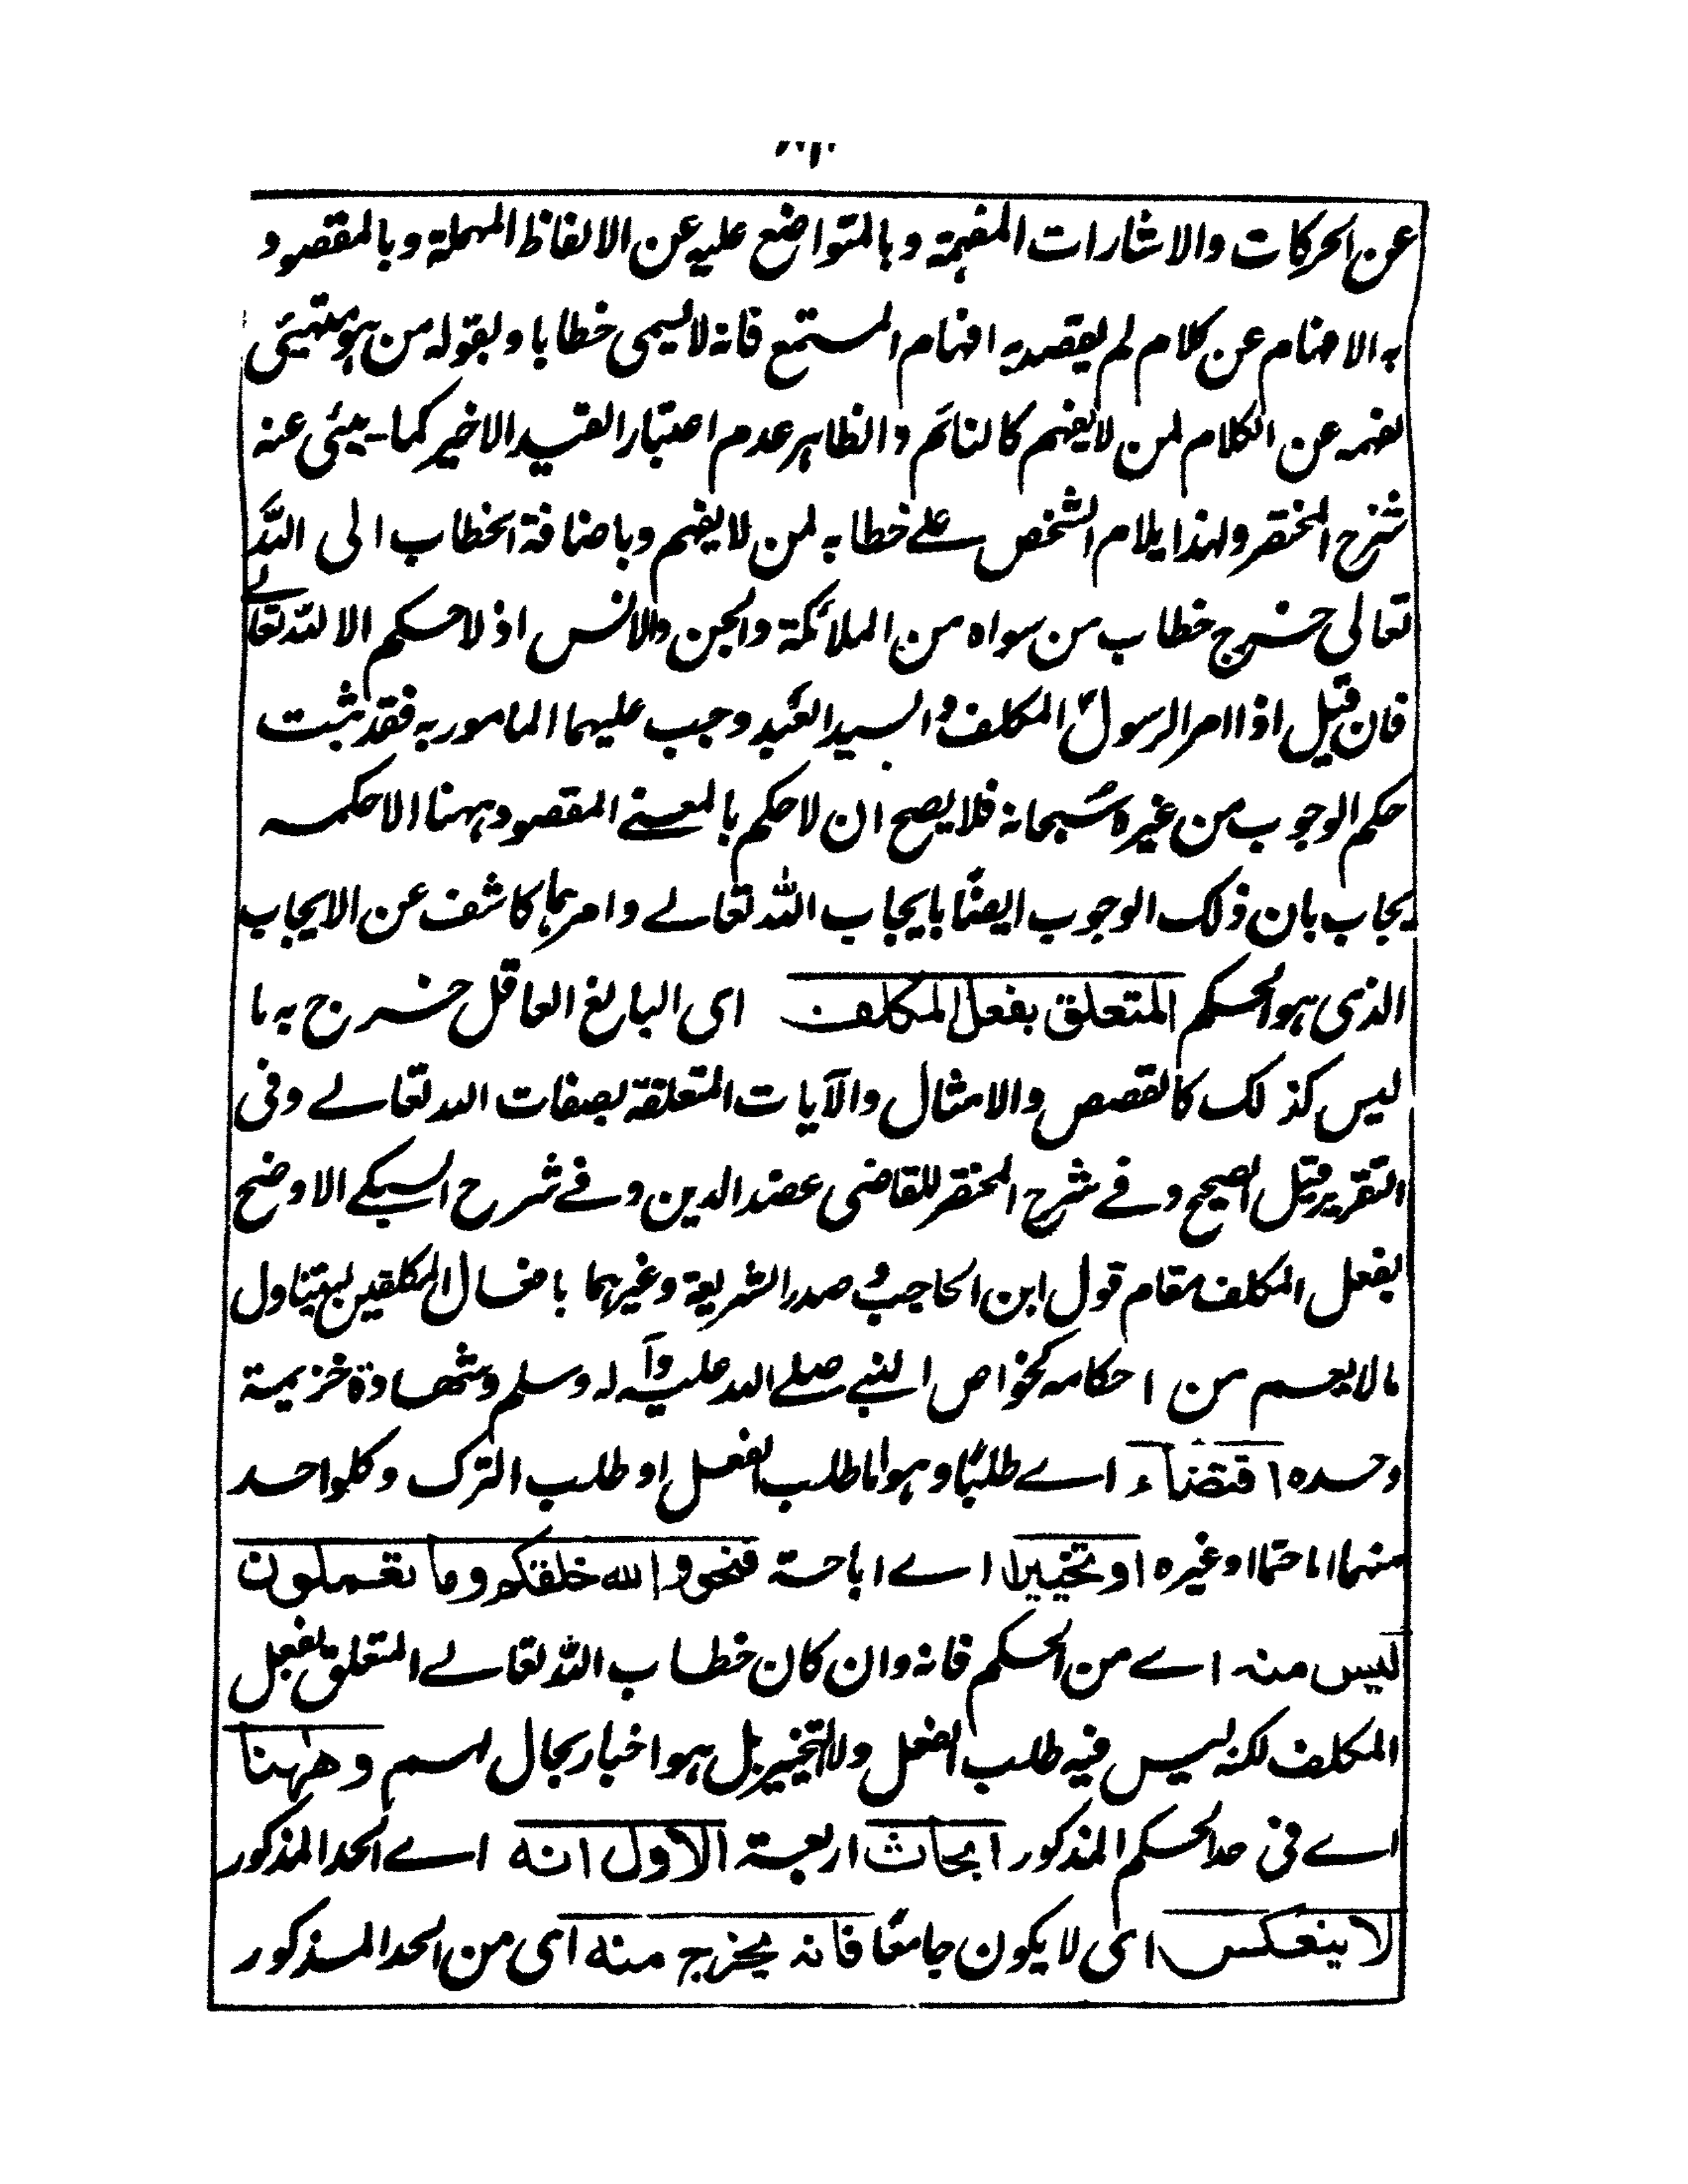 عن الحركات والاشارات المفهمة وبالمتواضع عليه عن الالفاظ المهملة وبالمقصود
به الافهام عن كلام لم يقصد به افهام المستمع فانه لا يسمى خطابا وبقوله من هو متهيئ
لفهمه عن الكلام لمن لا يفهم كالنائم والظاهر عدم اعتبار القيد الاخير كما ينبئ عنه
شرح المختصر ولهذا يلام الشخص على خطابه لمن لا يفهم وباضافة الخطاب الى الله
تعالى خرج خطاب من سواه من الملائكة والجن والانس اذ لا حكم الا لله تعالے
فان قيل اذا امر الرسول المكلف والسيد العبد وجب عليهما المامور به فقد ثبت
حكم الوجوب من غيره سبحانه فلا يصح ان لا حكم بالمعنے المقصود ههنا الا حكمه
يجاب بان ذلك الوجوب ايضًا بايجاب الله تعالے وامرهما كاشف عن الايجاب
الذى هو الحكم المتعلق بفعل المكلف اى البالغ العاقل خرج به ما
ليس كذلك كالقصص والامثال والآيات المتعلقة بصفات الله تعالے وفى
التقرير قيل الصحيح وفے شرح المختصر للقاضى عضد الدين وفے شرح السبكے الاوضح
بفعل المكلف مقام قول ابن الحاجب وصدر الشريعة وغيرهما بافعال المكلفين ليتناول
ما لا يعم من احكامه كخواص النبے صلے الله عليه وآله وسلم وشهادة خزيمة
وحده اقتضاء اے طلبًا وهو اما طلب الفعل او طلب الترك وكل واحد
منهما اما حتما او غيره او تخييرا اے اباحة فنحو والله خلقكم وما تعملون
ليس منه اے من الحكم فانه وان كان خطاب الله تعالے المتعلق بفعل
المكلف لكنه ليس فيه طلب الفعل ولا التخيير بل هو اخبار بحال لهم وههنا
اے فى حد الحكم المذكور ابحاث اربعة الاول انه اے الحد المذكور
لا ينعكس اى لا يكون جامعًا فانه يخرج منه اى من الحد المذكور